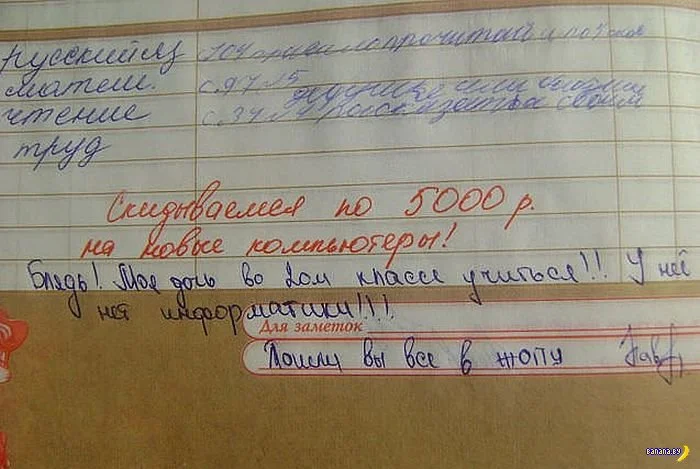 русский яз
матем. с.97 №5
чтение с. 34 рассказать своим
труд
Скидываемся по 5000 р.
на новые компьютеры!
Блядь! Моя дочь во 2ом классе учиться!!! У неё
нет информатики!!!!
Для заметок
Пошли вы все в жопу
BANANA.BY